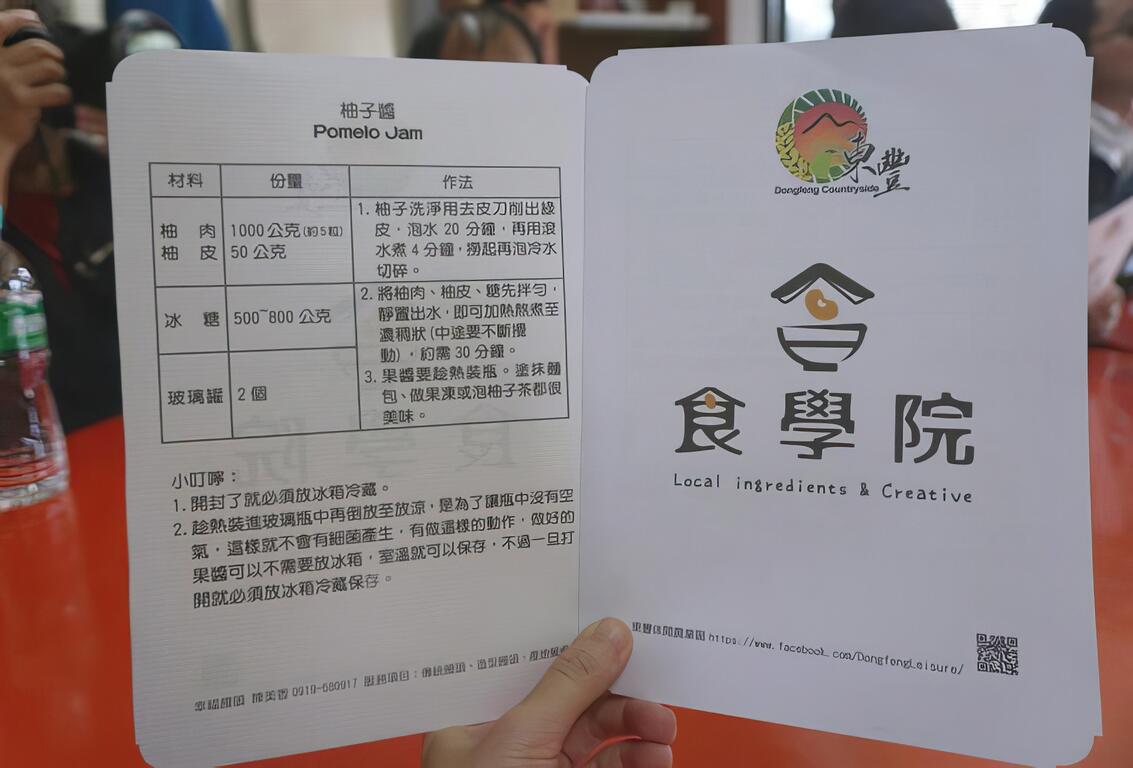 柚子醬
Pomelo Jam
材料 份量 作法
柚 肉 1000公克(約5粒)
柚 皮 50公克
1. 柚子洗淨用去皮刀削出綠
皮，泡水 20 分鐘，再用滾
水煮 4 分鐘，撈起再泡冷水
切碎。
冰 糖 500~800 公克
2. 將柚肉、柚皮、糖先拌勻，
靜置出水，即可加熱熬煮至
濃稠狀(中途要不斷攪
動)，約需 30 分鐘。
玻璃罐 2 個
3. 果醬要趁熱裝瓶。塗抹麵
包、做果凍或泡柚子茶都很
美味。
小叮嚀：
1. 開封了就必須放冰箱冷藏。
2. 趁熱裝進玻璃瓶中再倒放至放涼，是為了讓瓶中沒有空
氣，這樣就不會有細菌產生，有做這樣的動作，做好的
果醬可以不需要放冰箱，室溫就可以保存，不過一旦打
開就必須放冰箱冷藏保存。
0919-680917 服務項目：
東豐
Dongfong Countryside
食學院
Local ingredients & Creative
https://www.facebook.com/DongfongLeisure/